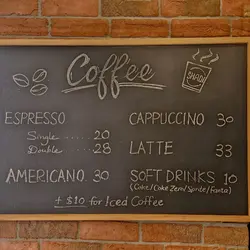 Coffee
SHADE
ESPRESSO
Single 20
Double 28
AMERICANO 30
+ $10 for Iced Coffee
CAPPUCCINO 30
LATTE 33
SOFT DRINKS 10
(Coke/Coke Zero/Sprite/Fanta)